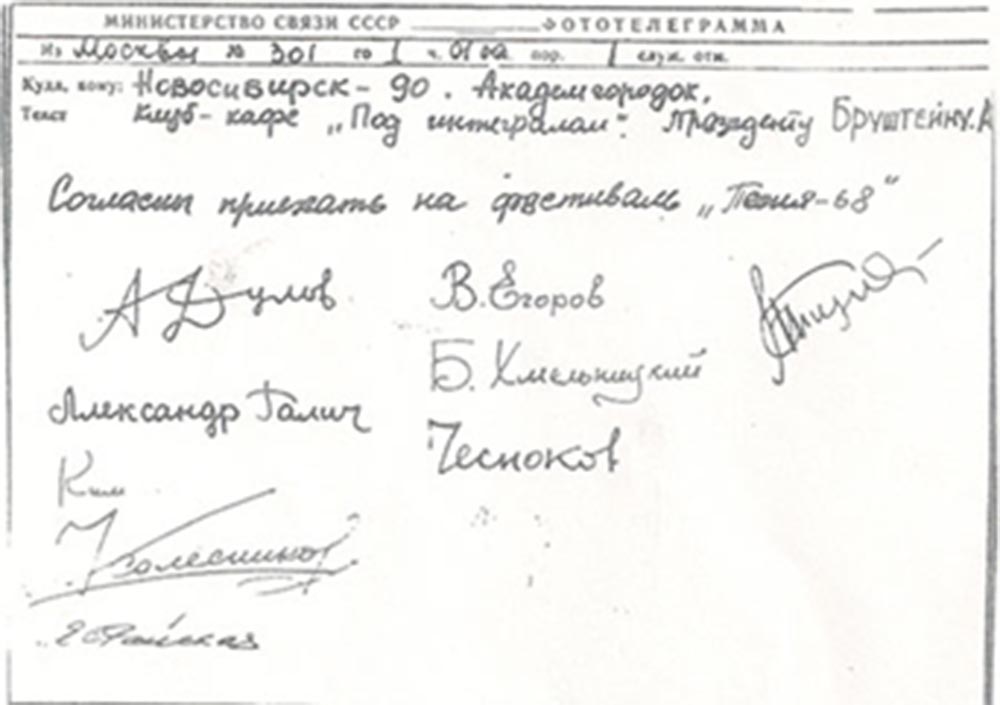 МИНИСТЕРСТВО СВЯЗИ СССР ФОТОТЕЛЕГРАММА
Из Москвы № 301 го 1 ч. 01 00 пор. 1 служ. отм.
Куда, кому: Новосибирск-90. Академгородок.
Текст Клуб-кафе „Под интегралом". Президенту Бруштейну.А
Согласны приехать на фестиваль „Песня-68"
А Дулов
В. Егоров
Б. Хмельницкий
Александр Галич
Чесноков
Ким
Колесников